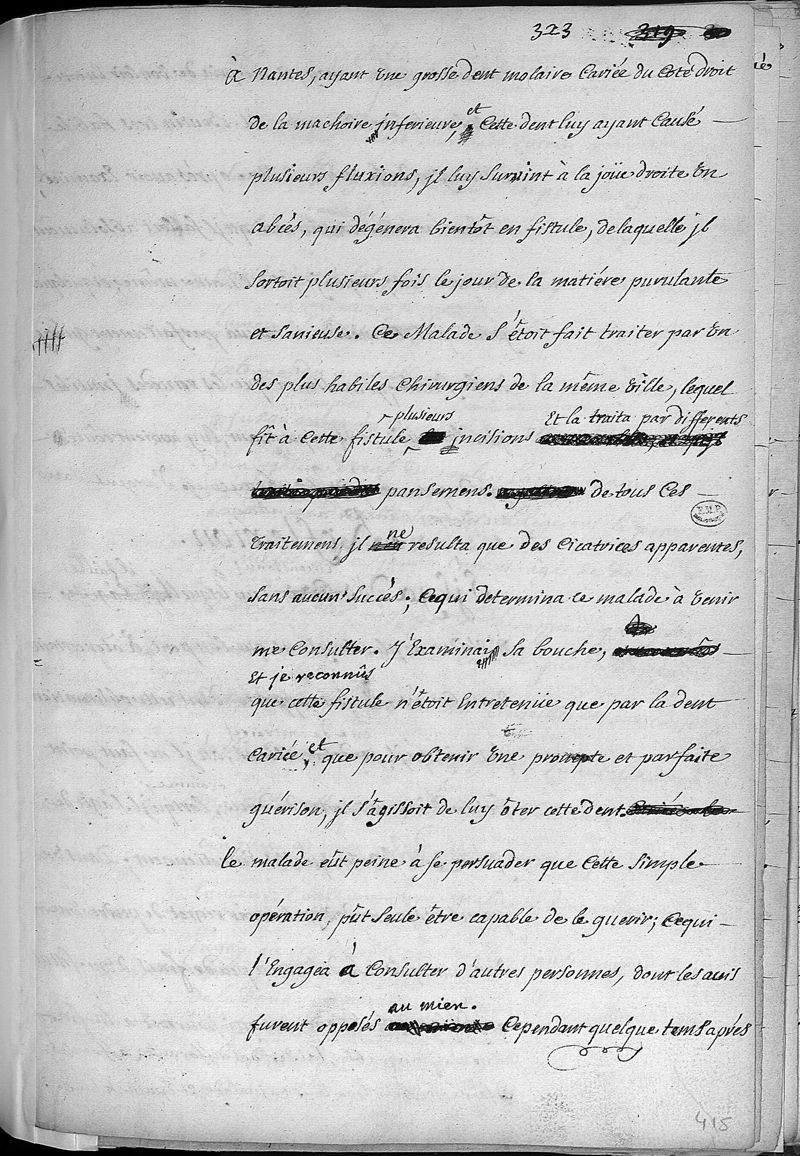 323 319
à Nantes, ayant une grosse dent molaire Cariée du Coté droit
de la machoire inferieure, et Cette dent luy ayant Causé
plusieurs fluxions, jl luy survint à la joüe droite un
abcés, qui dégénera bientôt en fistule, de laquelle jl
sortoit plusieurs fois le jour de la matiére purulante
et sanieuse. Ce Malade s'étoit fait traiter par un
des plus habiles Chirurgiens de la même ville, lequel
plusieurs Et la traita par differents
fit à Cette fistule jncisions
pansemens. de tous Ces
ne
Traitemens, jl resulta que des Cicatrices apparentes,
sans aucun succés; Cequi determina ce malade à venir
me Consulter. J'Examinai sa bouche,
Et je reconnûs
que cette fistule n'étoit Entretenüe que par la dent
Cariée, et que pour obtenir une prompte et parfaite
guérison, jl s'agissoit de luy ôter cette dent.
le malade eût peine à se persuader que Cette simple
opération, pût seule être capable de le guerir; Cequi
l'Engagea à Consulter d'autres personnes, dont les avis
au mien.
furent opposés Cependant quelque tems aprés
418